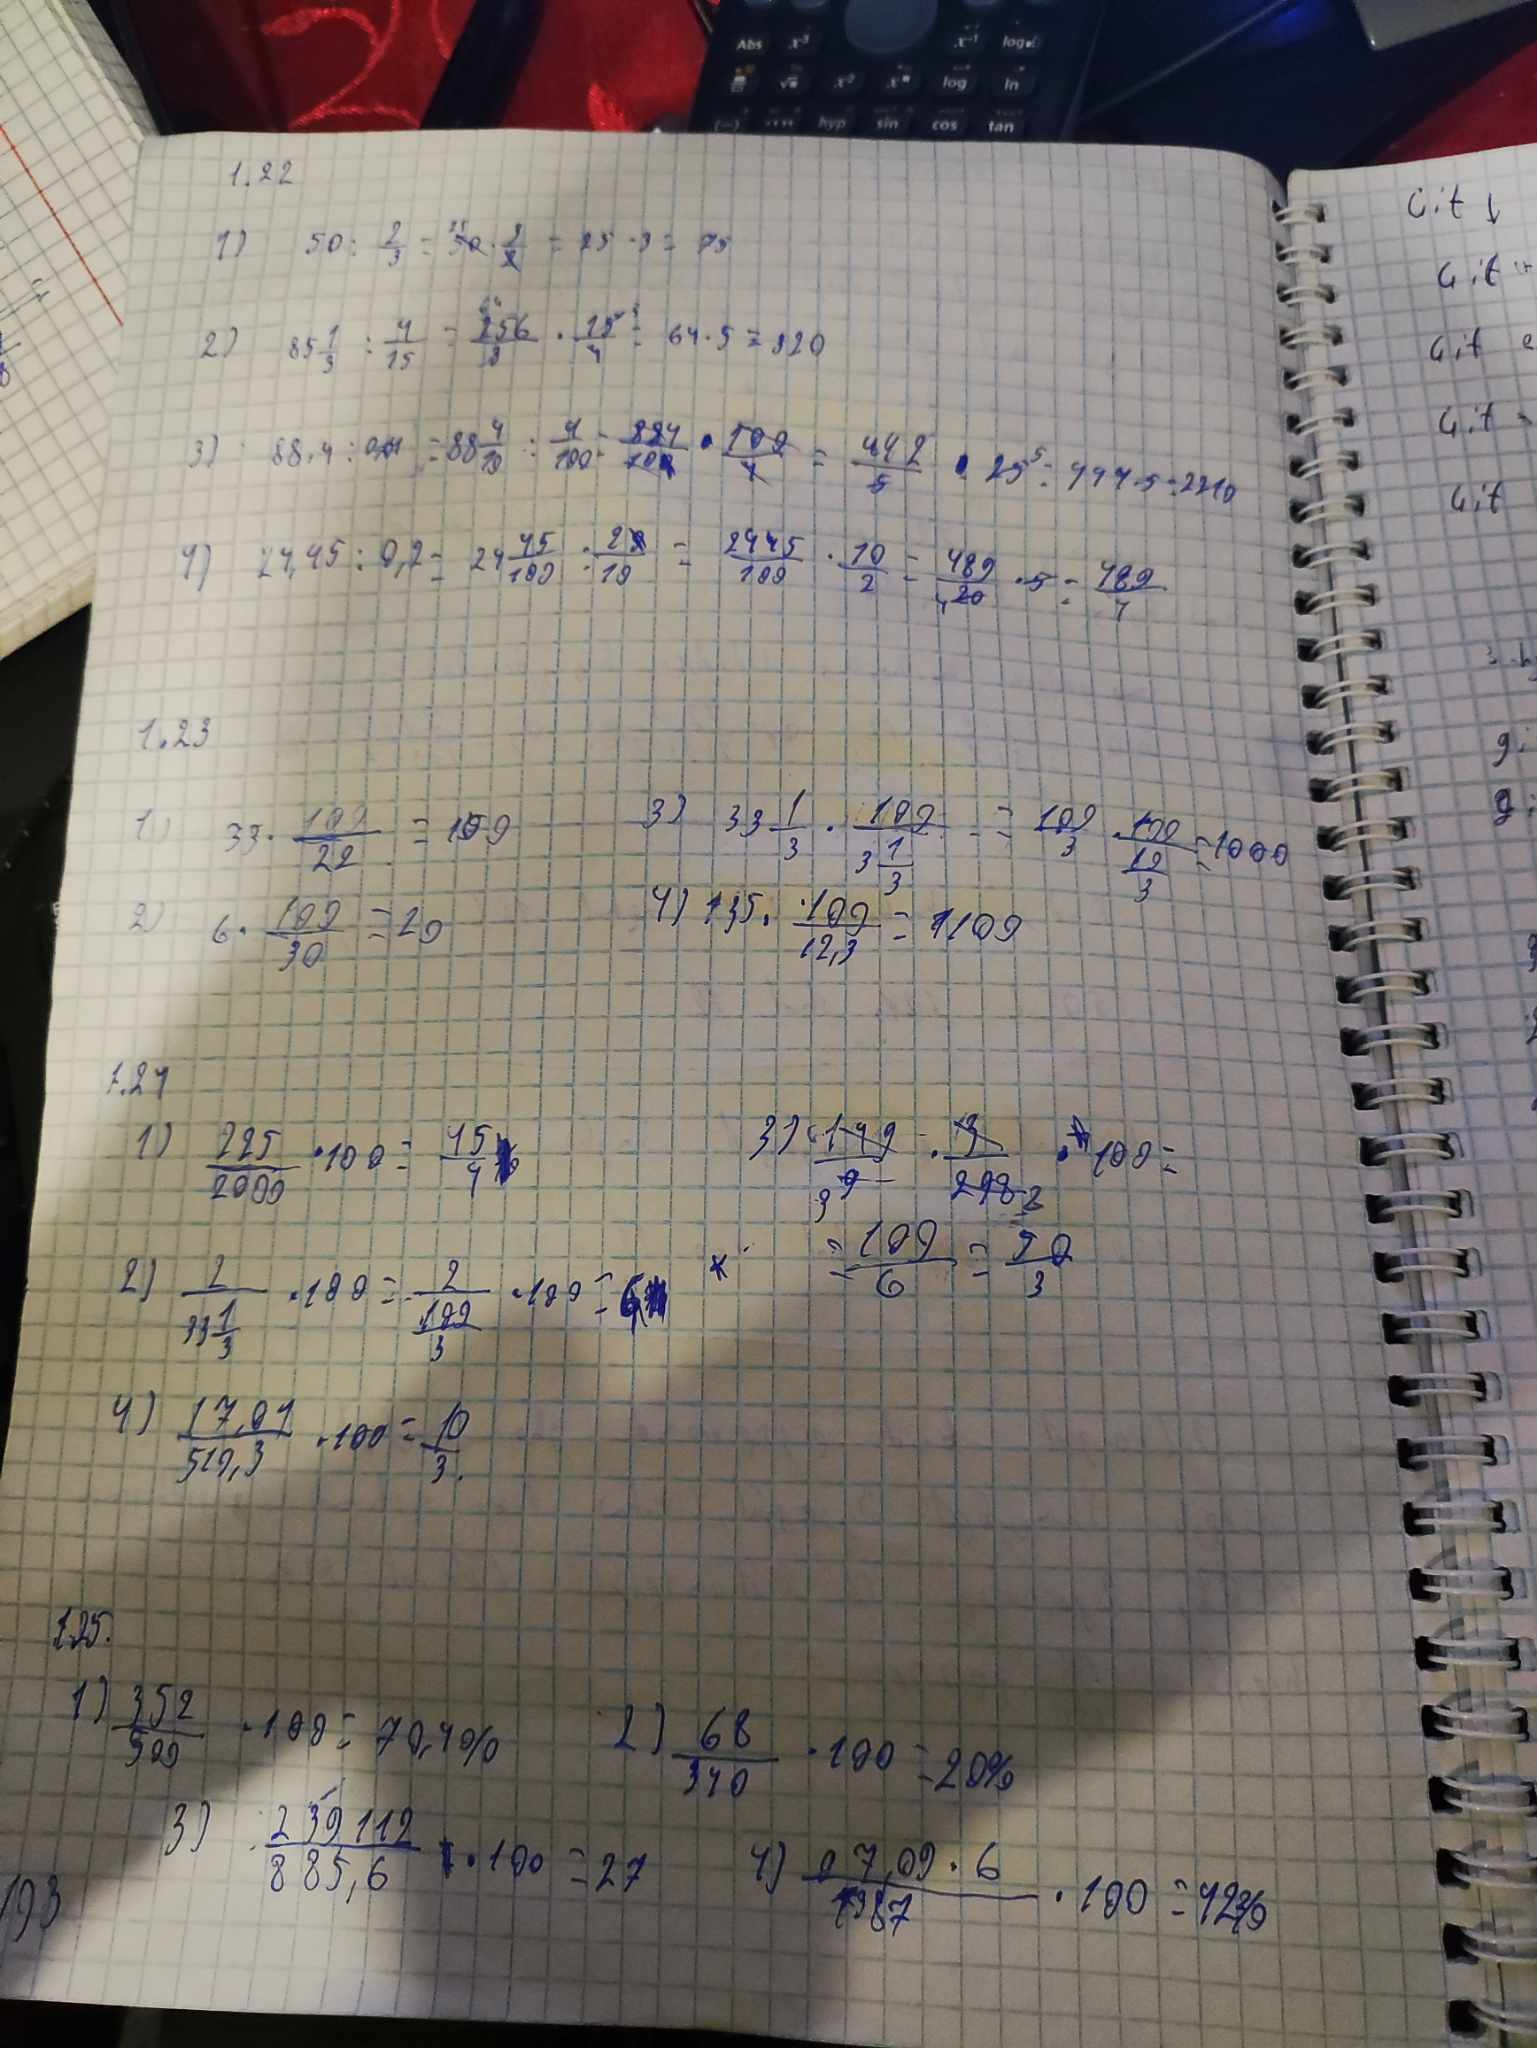 Abs x³ x⁻¹ log
x² log ln
(−) hyp sin cos tan
1.22
1) 50 : 2/3 = 50 · 3/2 = 25 · 3 = 75
2) 85 1/3 : 4/15 = 256/3 · 15/4 = 64 · 5 = 320
3) 88,4 : 0,04 = 88 4/10 : 4/100 = 884/100 · 100/4 = 442/5 · 25 = 444 · 5 = 2210
4) 24,45 : 0,2 = 24 45/100 : 2/10 = 2445/100 · 10/2 = 489/20 · 5 = 489/4
1.23
1) 33 · 100/22 = 150
3) 33 1/3 · 100/3 1/3 = 100/3 · 100/10/3 = 1000
2) 6 · 100/30 = 20
4) 135 · 100/12,3 = 1100
1.24
1) 225/2000 · 100 = 45/4
3) 149/9 · 3/298 · 100 =
= 100/6 = 50/3
2) 2/33 1/3 · 100 = 2/100/3 · 100 = 6
4) 17,01/510,3 · 100 = 10/3
1.25.
1) 352/500 · 100 = 70,4%
2) 68/340 · 100 = 20%
3) 239,112/885,6 · 100 = 27
4) 07,09 · 6/1387 · 100 = 42%
193
Git
Git
Git
Git
Git